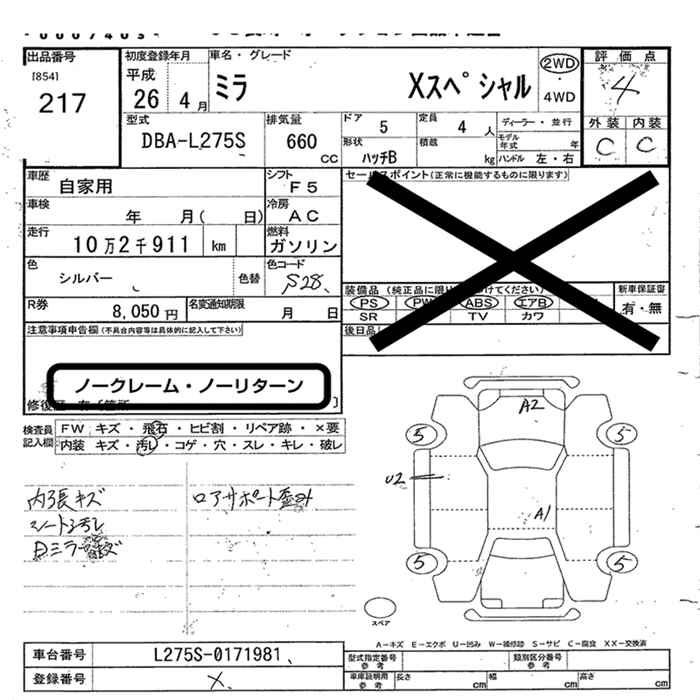 出品番号
[854]
217
初度登録年月
平成
26 4月
車名・グレード
ミラ Xスペシャル
2WD
・
4WD
評価点
4
型式
DBA-L275S
排気量
660
cc
ドア 5
定員 4 人
ディーラー・並行
モデル年式 年
形状
ハッチB
積載 kg
ハンドル 左・右
外装 内装
C C
車歴
自家用
シフト
F5
セールスポイント(正常に機能するものに限ります)
車検
年 月( 日)
冷房
AC
走行
10万2千911 km
燃料
ガソリン
色
シルバー
色替
色コード
S28
装備品
PS PW ABS エアB
SR TV カワ
新車保証書
有・無
R券
8,050円
名変通知期限
月 日
後日品
注意事項申告欄(不具合内容等は具体的に記入して下さい)
ノークレーム・ノーリターン
検査員記入欄
FW キズ・飛石・ヒビ割・リペア跡・×要
内装 キズ・汚レ・コゲ・穴・スレ・キレ・破レ
内張キズ
シート汚レ
ロアサポート歪み
A2
5 5
U2
A1
5 5
スペア
A-キズ E-エクボ U-凹み W-補修跡 S-サビ C-腐食 XX-交換済
車台番号
L275S-0171981
登録番号
X
型式指定番号
参考
類別区分番号
参考
車庫証明用
参考
長さ cm
幅 cm
高さ cm